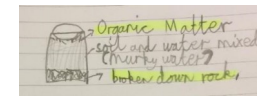 Organic Matter
soil and water mixed
(murky water)
broken down rock.